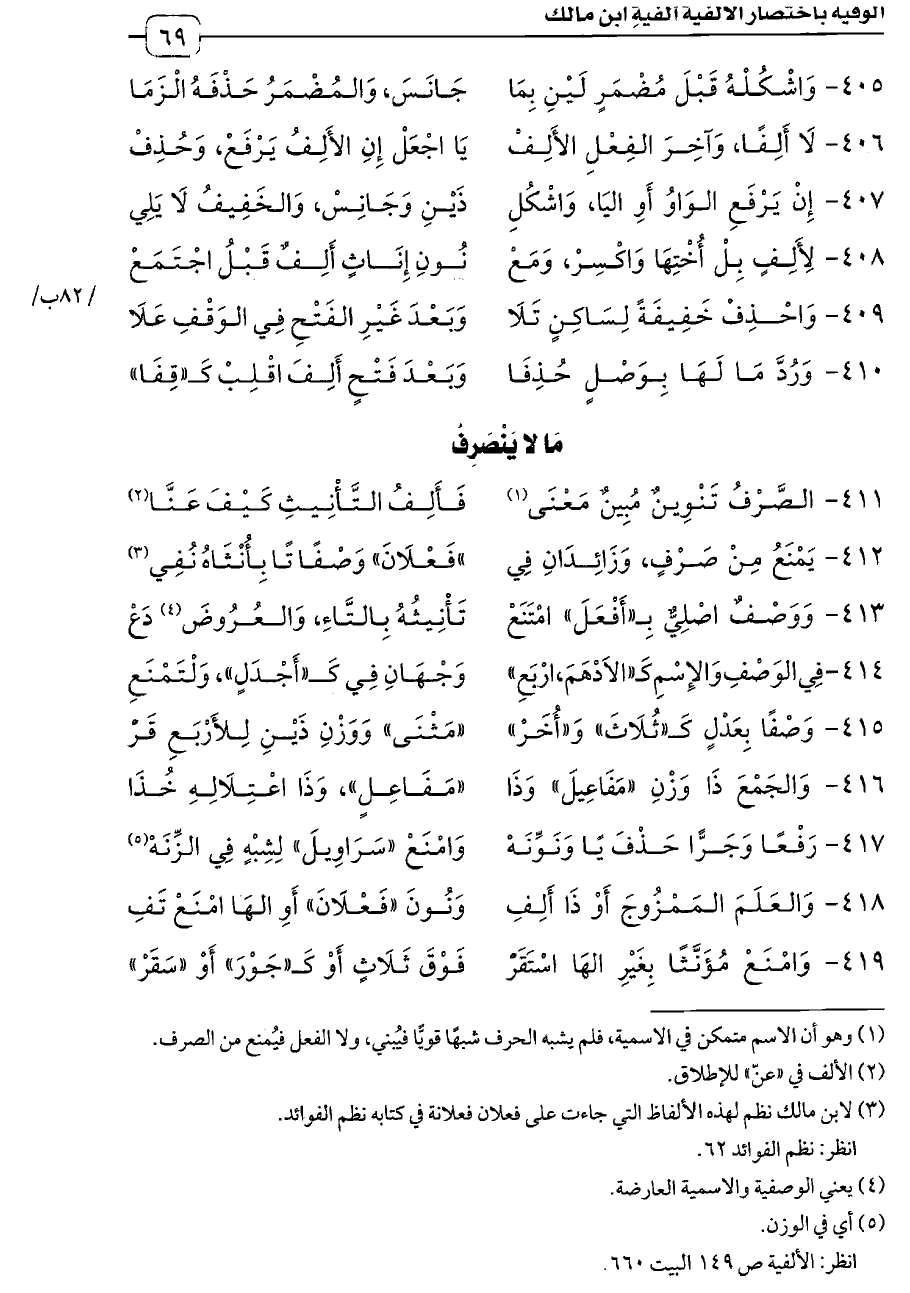 الوفية باختصار الألفية ألفية ابن مالك
٦٩
٤٠٥- وَاشْكُلْهُ قَبْلَ مُضْمَرٍ لَيْنِ بِمَا جَانَسَ، وَالـمُضْمَرُ حَذْفَهُ الْزَمَا
٤٠٦- لَا أَلِفًا، وَآخِرَ الفِعْلِ الأَلِفْ يَا اجْعَلْ إِنِ الأَلِفُ يَرْفَعْ، وَحُذِفْ
٤٠٧- إِنْ يَرْفَعِ الوَاوُ أَوِ اليَا، وَاشْكُلِ ذَيْنِ وَجَانِسْ، وَالخَفِيفُ لَا يَلِي
٤٠٨- لِأَلِفٍ بِلْ أُخْتِهَا وَاكْسِرْ، وَمَعْ نُونِ إِنَاثٍ أَلِفٌ قَبْلُ اجْتَمَعْ
/٨٢ب/
٤٠٩- وَاحْذِفْ خَفِيفَةً لِسَاكِنٍ تَلَا وَبَعْدَ غَيْرِ الفَتْحِ فِي الوَقْفِ عَلَا
٤١٠- وَرُدَّ مَا لَهَا بِوَصْلٍ حُذِفَا وَبَعْدَ فَتْحٍ أَلِفَ اقْلِبْ كَـ«قِفَا»
مَا لا يَنْصَرِفُ
٤١١- الصَّرْفُ تَنْوِينٌ مُبِينٌ مَعْنَى(١) فَأَلِفُ التَّأْنِيثِ كَيْفَ عَنَّا(٢)
٤١٢- يَمْنَعُ مِنْ صَرْفٍ، وَزَائِدَانِ فِي «فَعْلَانَ» وَصْفًا تَا بِأُنْثَاهُ نُفِي(٣)
٤١٣- وَوَصْفٌ اصْلِيٌّ بِـ«أَفْعَلَ» امْتَنَعْ تَأْنِيثُهُ بِالتَّاءِ، وَالعُرُوضَ(٤) دَعْ
٤١٤- فِي الوَصْفِ وَالإِسْمِ كَـ«الأَدْهَمَ، ارْبَعِ» وَجْهَانِ فِي كَـ«أَجْدَلٍ»، وَلْتَمْنَعِ
٤١٥- وَصْفًا بِعَدْلٍ كَـ«ثُلَاثَ» وَ«أُخَرْ» «مَثْنَى» وَوَزْنِ ذَيْنِ لِلأَرْبَعِ قَرّْ
٤١٦- وَالجَمْعَ ذَا وَزْنِ «مَفَاعِيلَ» وَذَا «مَفَاعِلٍ»، وَذَا اعْتِلَالِهِ خُذَا
٤١٧- رَفْعًا وَجَرًّا حَذْفَ يَا وَنَوِّنَهْ وَامْنَعْ «سَرَاوِيلَ» لِشِبْهٍ فِي الزِّنَهْ(٥)
٤١٨- وَالعَلَمَ المَمْزُوجَ أَوْ ذَا أَلِفِ وَنُونَ «فَعْلَانَ» أَوِ الهَا امْنَعْ تَفِ
٤١٩- وَامْنَعْ مُؤَنَّثًا بِغَيْرِ الهَا اسْتَقَرّْ فَوْقَ ثَلَاثٍ أَوْ كَـ«جَوْرَ» أَوْ «سَقَرْ»
(١) وهو أن الاسم متمكن في الاسمية، فلم يشبه الحرف شبهًا قويًّا فيُبني، ولا الفعل فيُمنع من الصرف.
(٢) الألف في «عنّ» للإطلاق.
(٣) لابن مالك نظم لهذه الألفاظ التي جاءت على فعلان فعلانة في كتابه نظم الفوائد.
انظر: نظم الفوائد ٦٢.
(٤) يعني الوصفية والاسمية العارضة.
(٥) أي في الوزن.
انظر: الألفية ص ١٤٩ البيت ٦٦٠.